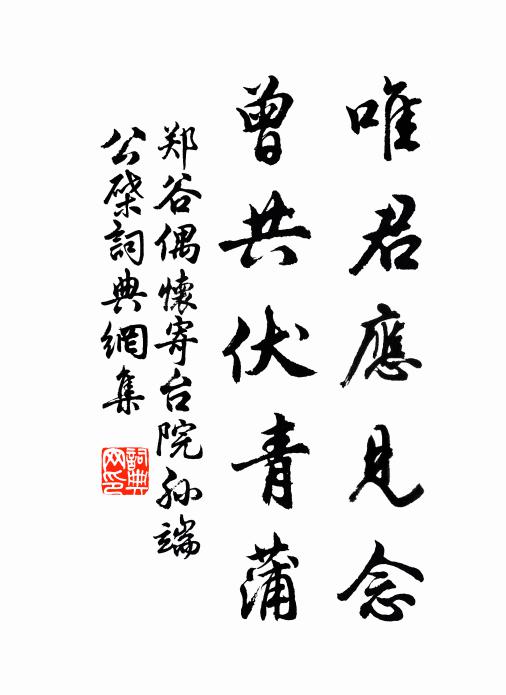 唯君應見念
曾共伏青蒲
郑谷偶懷寄台院孙端
公棨詞典網集
詞典
网印